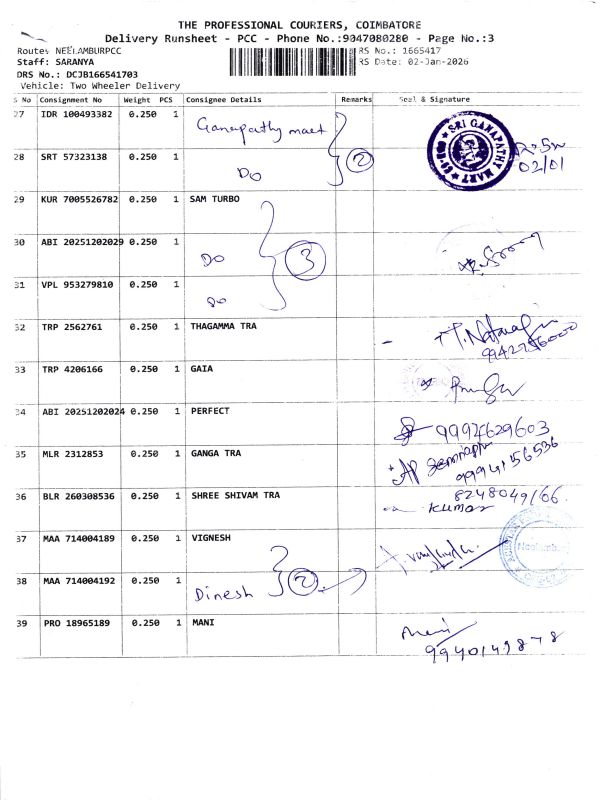 THE PROFESSIONAL COURIERS, COIMBATORE
Delivery Runsheet - PCC - Phone No.:9047080280 - Page No.:3
Route: NEELAMBURPCC RS No.: 1665417
Staff: SARANYA RS Date: 02-Jan-2026
DRS No.: DCJB166541703
Vehicle: Two Wheeler Delivery
S No Consignment No Weight PCS Consignee Details Remarks Seal & Signature
27 IDR 100493382 0.250 1 Ganapathy mart
SRI GANAPATHY MART
02/01
28 SRT 57323138 0.250 1 Do 2
29 KUR 7005526782 0.250 1 SAM TURBO
30 ABI 20251202029 0.250 1 Do 3
31 VPL 953279810 0.250 1 Do
32 TRP 2562761 0.250 1 THAGAMMA TRA
33 TRP 4206166 0.250 1 GAIA
34 ABI 20251202024 0.250 1 PERFECT
35 MLR 2312853 0.250 1 GANGA TRA 99941 56536
36 BLR 260308536 0.250 1 SHREE SHIVAM TRA
kumar
37 MAA 714004189 0.250 1 VIGNESH
38 MAA 714004192 0.250 1 Dinesh 2
39 PRO 18965189 0.250 1 MANI Mani
9940149878